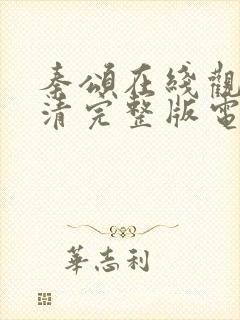 秦頌在綫觀
清完整版電
華志利